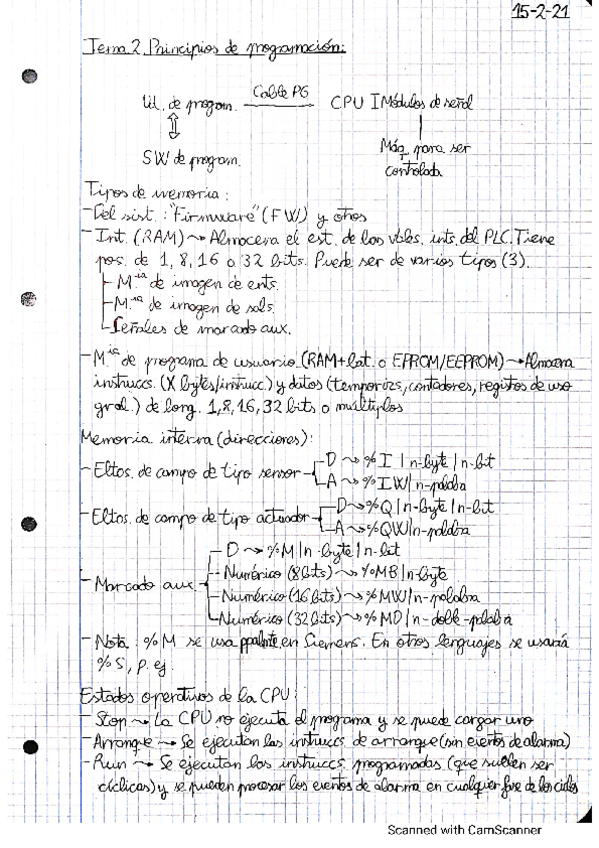 15-2-21
Tema 2. Principios de programación:
Ud. de program. Cable PG CPU I Módulos de señal
SW de program. Máq. para ser
controlada
Tipos de memoria:
- Del sist.: "Firmware" (FW) y otros
- Int. (RAM) → Almacena el est. de las vbles. ints. del PLC. Tiene
pos. de 1, 8, 16 o 32 bits. Puede ser de varios tipos (3).
- M.ia de imagen de ents.
- M.ia de imagen de sals.
- Señales de marcado aux.
- M.ia de programa de usuario (RAM+bat. o EPROM/EEPROM) → Almacena
instruccs. (X bytes/instrucc.) y datos (temporizs, contadores, registos de uso
gral.) de long. 1,8,16,32 bits o múltiplos
Memoria interna (direcciones):
- Eltos. de campo de tipo sensor - D → %I | n-byte | n-bit
- A → %IW | n-palabra
- Eltos. de campo de tipo actuador - D → %Q | n-byte | n-bit
- A → %QW | n-palabra
- D → %M | n-byte | n-bit
- Numérico (8 bits) → %MB | n-byte
- Marcado aux. - Numérico (16 bits) → %MW | n-palabra
- Numérico (32 bits) → %MD | n-doble-palabra
- Nota: %M se usa ppalmte. en Siemens. En otros lenguajes se usará
%S, p. ej.
Estados operativos de la CPU:
- Stop → La CPU no ejecuta el programa y se puede cargar uno
- Arranque → Se ejecutan las instruccs de arranque (sin eventos de alarma)
- Run → Se ejecutan las instruccs. programadas (que suelen ser
cíclicas) y se pueden procesar los eventos de alarma en cualquier fase de los ciclos
Scanned with CamScanner